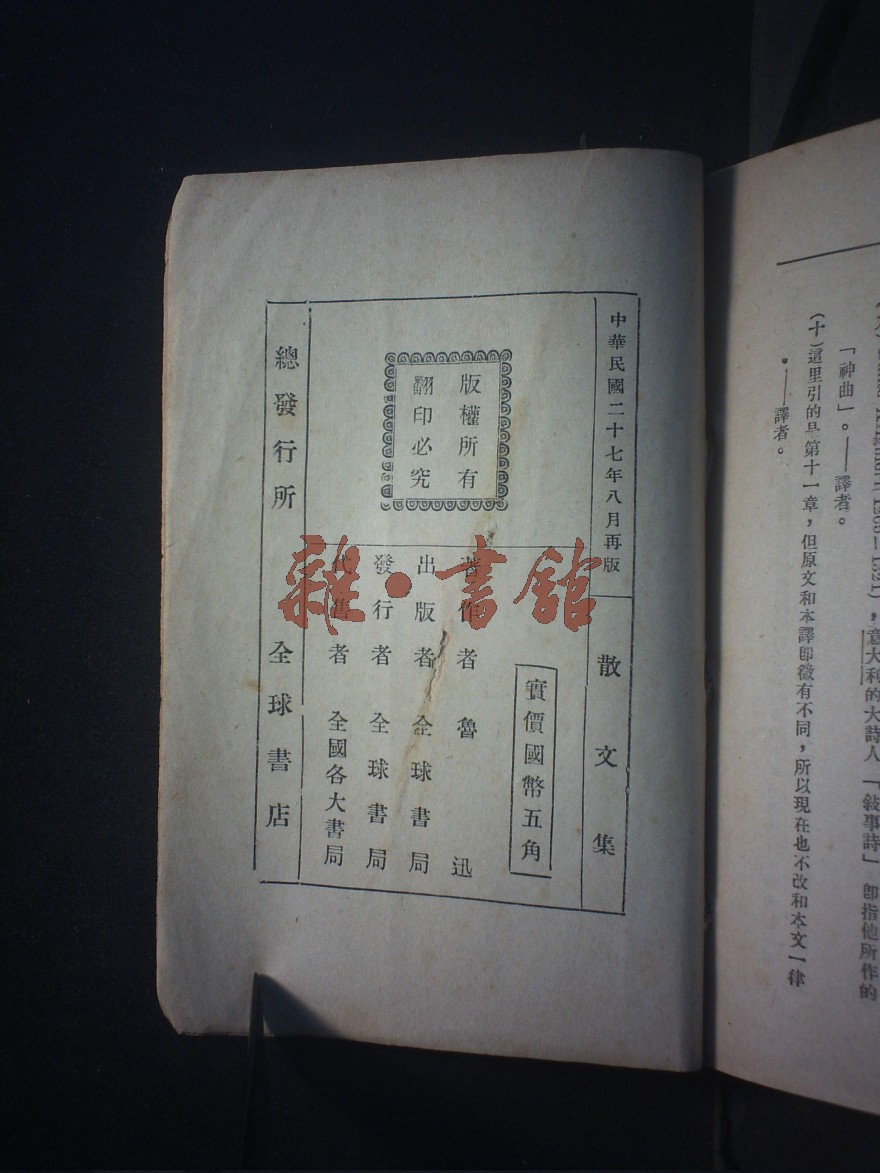 「神曲」。——譯者。
（十）這里引的是第十一章，但原文和本譯卽微有不同，所以現在也不改和本文一律
。——譯者。
中華民國二十七年八月再版
散文集
實價國幣五角
版權所有
翻印必究
著作者 魯迅
出版者 全球書局
發行者 全球書局
代售者 全國各大書局
總發行所 全球書店
雜·書館